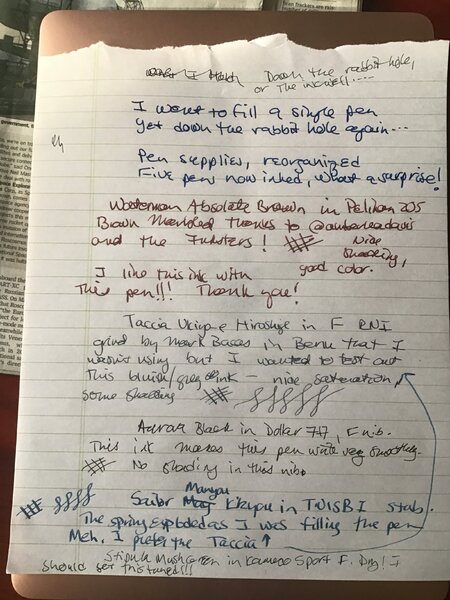 Down the rabbit hole,
or The inkwell....
I want to fill a single pen
Yet down the rabbit hole again...
Pen supplies, reorganized
Five pens now inked, What a surprise!
Waterman Absolute Brown in Pelikan 205
Brown Marbled thanks to @amberleadavis
and the Funsters! Nice
Shading,
I like this ink with good color.
This pen!!! Thank you!
Taccia Ukiyoe Hiroshige in F
grind by Mark Bacas in Benu that I
wasn't using but I wanted to test out
This bluish/grey ink - nice saturation,
some shading
Aurora Black in Dollar 717, F nib.
This ink makes this pen write very smoothly.
No shading in this nib.
Sailor Manyou in TWSBI stub.
The spring exploded as I was filling the pen
Meh. I prefer the Taccia ↑
Stipula Mushroom in Kaweco Sport F. Dry! I
should get this tuned!!!